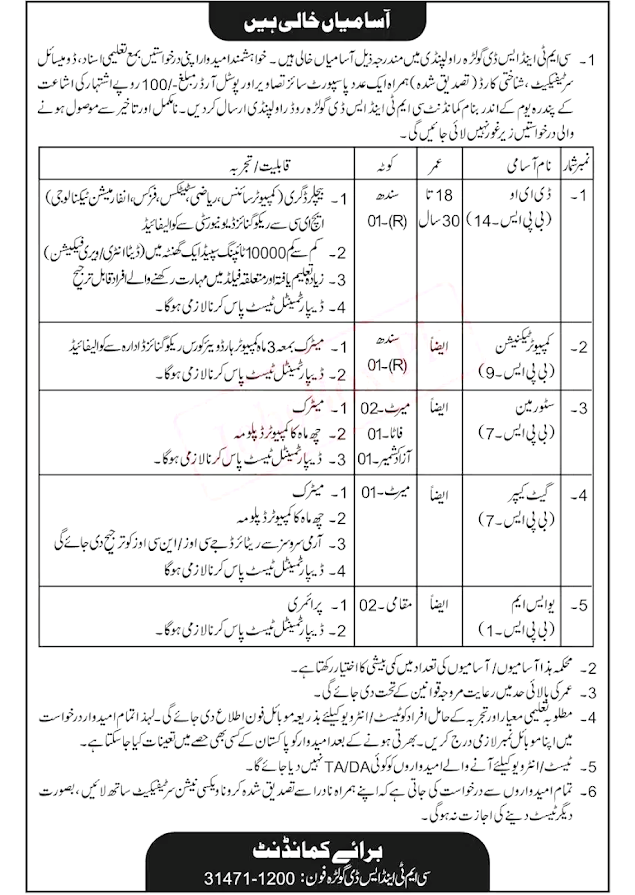 آسامیاں خالی ہیں
1۔ سی ایم ٹی اینڈ ایس ڈی گولڑہ راولپنڈی میں مندرجہ ذیل آسامیاں خالی ہیں۔ خواہشمند امیدوار اپنی درخواستیں بمع تعلیمی اسناد، ڈومیسائل
سرٹیفکیٹ، شناختی کارڈ (تصدیق شدہ) ہمراہ ایک عدد پاسپورٹ سائز تصاویر اور پوسٹل آرڈر مبلغ -/100 روپے اشتہار کی اشاعت
کے پندرہ یوم کے اندر بنام کمانڈنٹ سی ایم ٹی اینڈ ایس ڈی گولڑہ روڈ راولپنڈی ارسال کر دیں۔ نامکمل اور تاخیر سے موصول ہونے
والی درخواستیں زیر غور نہیں لائی جائیں گی۔
نمبر شمار نام آسامی عمر کوٹہ قابلیت/تجربہ
1۔ ڈی ای او 18 تا سندھ 1۔ بیچلرز ڈگری (کمپیوٹر سائنس، ریاضی، سٹیٹکس، فزکس، انفارمیشن ٹیکنالوجی)
(بی پی ایس۔14) 30 سال (R)-01 ایچ ای سی سے ریکوگنائزڈ یونیورسٹی سے کوالیفائیڈ
2۔ کم سے کم 10000 ٹائپنگ سپیڈ ایک گھنٹہ میں (ڈیٹا انٹری/ویری فیکیشن)
3۔ زیادہ تعلیم یافتہ اور متعلقہ فیلڈ میں مہارت رکھنے والے افراد قابل ترجیح
4۔ ڈیپارٹمینٹل ٹیسٹ پاس کرنا لازمی ہوگا۔
2۔ کمپیوٹر ٹیکنیشن ایضاً سندھ 1۔ میٹرک بمعہ 3 ماہ کمپیوٹر ہارڈ ویئر کورس ریکوگنائزڈ ادارہ سے کوالیفائیڈ
(بی پی ایس۔9) (R)-01 2۔ ڈیپارٹمینٹل ٹیسٹ پاس کرنا لازمی ہوگا۔
3۔ سٹورمین ایضاً میرٹ۔02 1۔ میٹرک
(بی پی ایس۔7) فاٹا۔01 2۔ چھ ماہ کا کمپیوٹر ڈپلومہ
آزاد کشمیر۔01 3۔ ڈیپارٹمینٹل ٹیسٹ پاس کرنا لازمی ہوگا۔
4۔ گیٹ کیپر ایضاً میرٹ۔01 1۔ میٹرک
(بی پی ایس۔7) 2۔ چھ ماہ کا کمپیوٹر ڈپلومہ
3۔ آرمی سروسز سے ریٹائرڈ جے سی اوز/این سی اوز کو ترجیح دی جائے گی
4۔ ڈیپارٹمینٹل ٹیسٹ پاس کرنا لازمی ہوگا
5۔ یو ایس ایم ایضاً مقامی۔02 1۔ پرائمری
(بی پی ایس۔1) 2۔ ڈیپارٹمینٹل ٹیسٹ پاس کرنا لازمی ہوگا۔
2۔ محکمہ ہذا آسامیوں/آسامیوں کی تعداد میں کمی بیشی کا اختیار رکھتا ہے۔
3۔ عمر کی بالائی حد میں رعایت مروجہ قوانین کے تحت دی جائے گی۔
4۔ مطلوبہ تعلیمی معیار اور تجربہ کے حامل افراد کو ٹیسٹ/انٹرویو کیلئے بذریعہ موبائل فون اطلاع دی جائے گی۔ لہذا تمام امیدوار درخواست
میں اپنا موبائل نمبر لازمی درج کریں۔ بھرتی ہونے کے بعد امیدوار کو پاکستان کے کسی بھی حصے میں تعینات کیا جا سکتا ہے۔
5۔ ٹیسٹ/انٹرویو کیلئے آنے والے امیدواروں کو کوئی TA/DA نہیں دیا جائے گا۔
6۔ تمام امیدواروں سے درخواست کی جاتی ہے کہ اپنے ہمراہ نادرا سے تصدیق شدہ کرونا ویکسی نیشن سرٹیفکیٹ ساتھ لائیں، بصورت
دیگر ٹیسٹ دینے کی اجازت نہ ہوگی۔
برائے کمانڈنٹ
سی ایم ٹی اینڈ ایس ڈی گولڑہ فون: 1200-31471